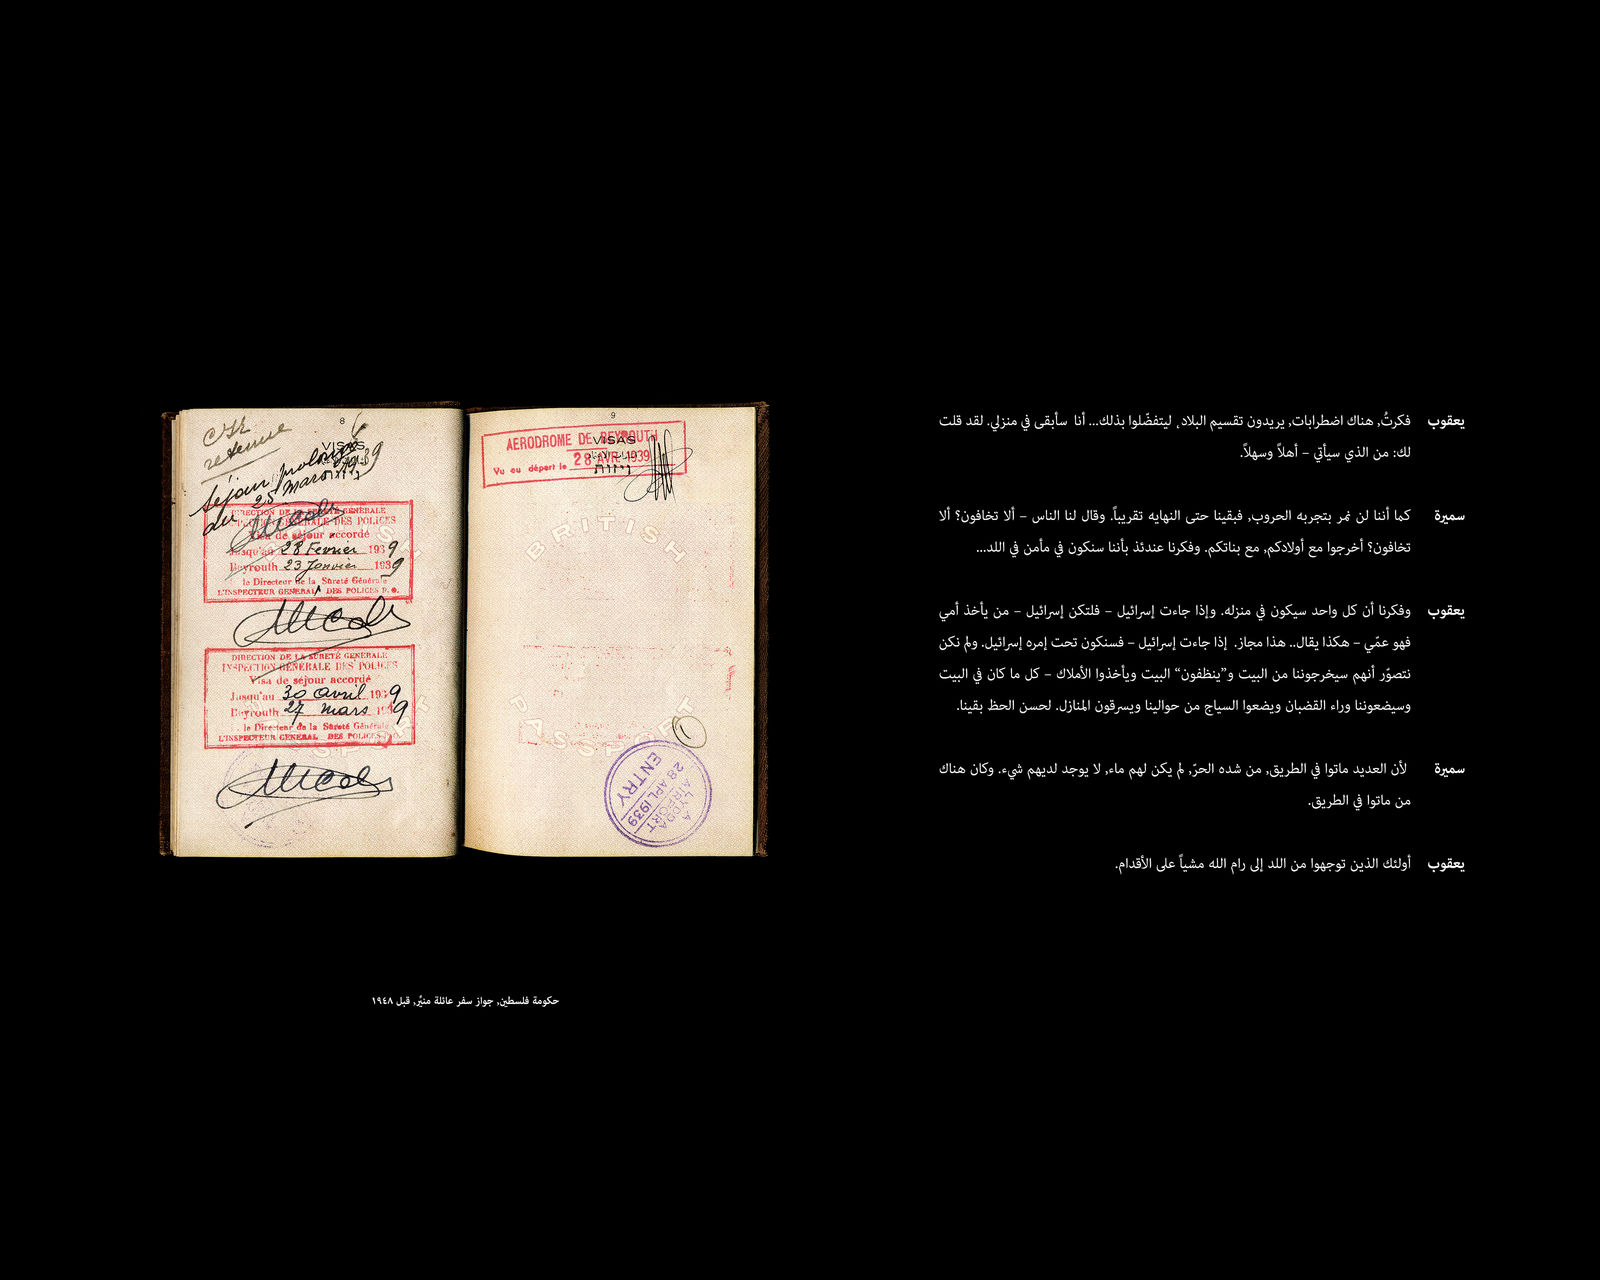 8
VISAS
C.I.R.
retenue
séjour prolongé
du 25 mars 1939
DIRECTION DE LA SÛRETÉ GÉNÉRALE
INSPECTION GÉNÉRALE DES POLICES
Visa de séjour accordé
Jusqu'au 28 Février 1939
Beyrouth 23 Janvier 1939
le Directeur de la Sûreté Générale
L'INSPECTEUR GENERAL DES POLICES P. O.
DIRECTION DE LA SÛRETÉ GÉNÉRALE
INSPECTION GÉNÉRALE DES POLICES
Visa de séjour accordé
Jusqu'au 30 avril 1939
Beyrouth 27 mars 1939
le Directeur de la Sûreté Générale
L'INSPECTEUR GENERAL DES POLICES P.O.
9
AERODROME DE BEYROUTH
VISAS
Vu au départ le 28 AVR. 1939
ויזות
BRITISH
PASSPORT
LYDDA
AIRPORT
28 APL 1939
ENTRY
حكومة فلسطين, جواز سفر عائلة منيّر, قبل ١٩٤٨
يعقوب فكرتُ, هناك اضطرابات, يريدون تقسيم البلاد. ليتفضّلوا بذلك... أنا سأبقى في منزلي. لقد قلت
لك: من الذي سيأتي – أهلاً وسهلاً.
سميرة كما أننا لن نمر بتجربه الحروب, فبقينا حتى النهايه تقريباً. وقال لنا الناس – ألا تخافون؟ ألا
تخافون؟ أخرجوا مع أولادكم, مع بناتكم. وفكرنا عندئذ بأننا سنكون في مأمن في اللد...
يعقوب وفكرنا أن كل واحد سيكون في منزله. وإذا جاءت إسرائيل – فلتكن إسرائيل – من يأخذ أمي
فهو عمّي – هكذا يقال.. هذا مجاز. إذا جاءت إسرائيل – فسنكون تحت إمره إسرائيل. ولم نكن
نتصوّر أنهم سيخرجوننا من البيت و”ينظفون“ البيت ويأخذوا الأملاك – كل ما كان في البيت
وسيضعوننا وراء القضبان ويضعوا السياج من حوالينا ويسرقون المنازل. لحسن الحظ بقينا.
سميرة لأن العديد ماتوا في الطريق, من شده الحرّ, لم يكن لهم ماء, لا يوجد لديهم شيء. وكان هناك
من ماتوا في الطريق.
يعقوب أولئك الذين توجهوا من اللد إلى رام الله مشياً على الأقدام.